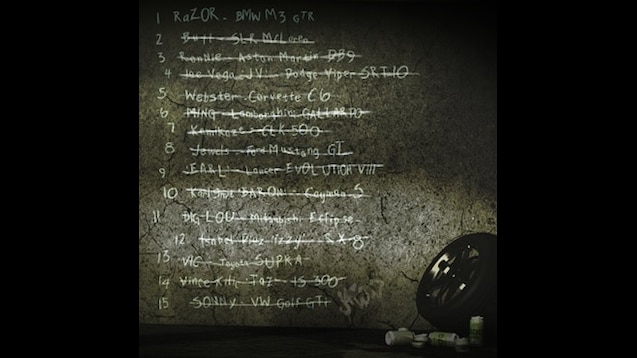 1 RaZOR - BMW M3 GTR
2 Bull - SLR McLaren
3 Ronnie - Aston Martin DB9
4 Joe Vega JV - Dodge Viper SRT 10
5 Webster - Corvette C6
6 MING - Lamborghini GALLARDO
7 Kamikaze - CLK 500
8 Jewels - Ford Mustang GT
9 'EARL' - Lancer EVOLUTION VIII
10 'BARON' - Cayman S
11 BIG LOU - Mitsubishi Eclipse
12 'izzy' - 8
13 VIC - Toyota SUPRA
14 Vince Kilic Taz - IS 300
15 SONNY - VW Golf GTI